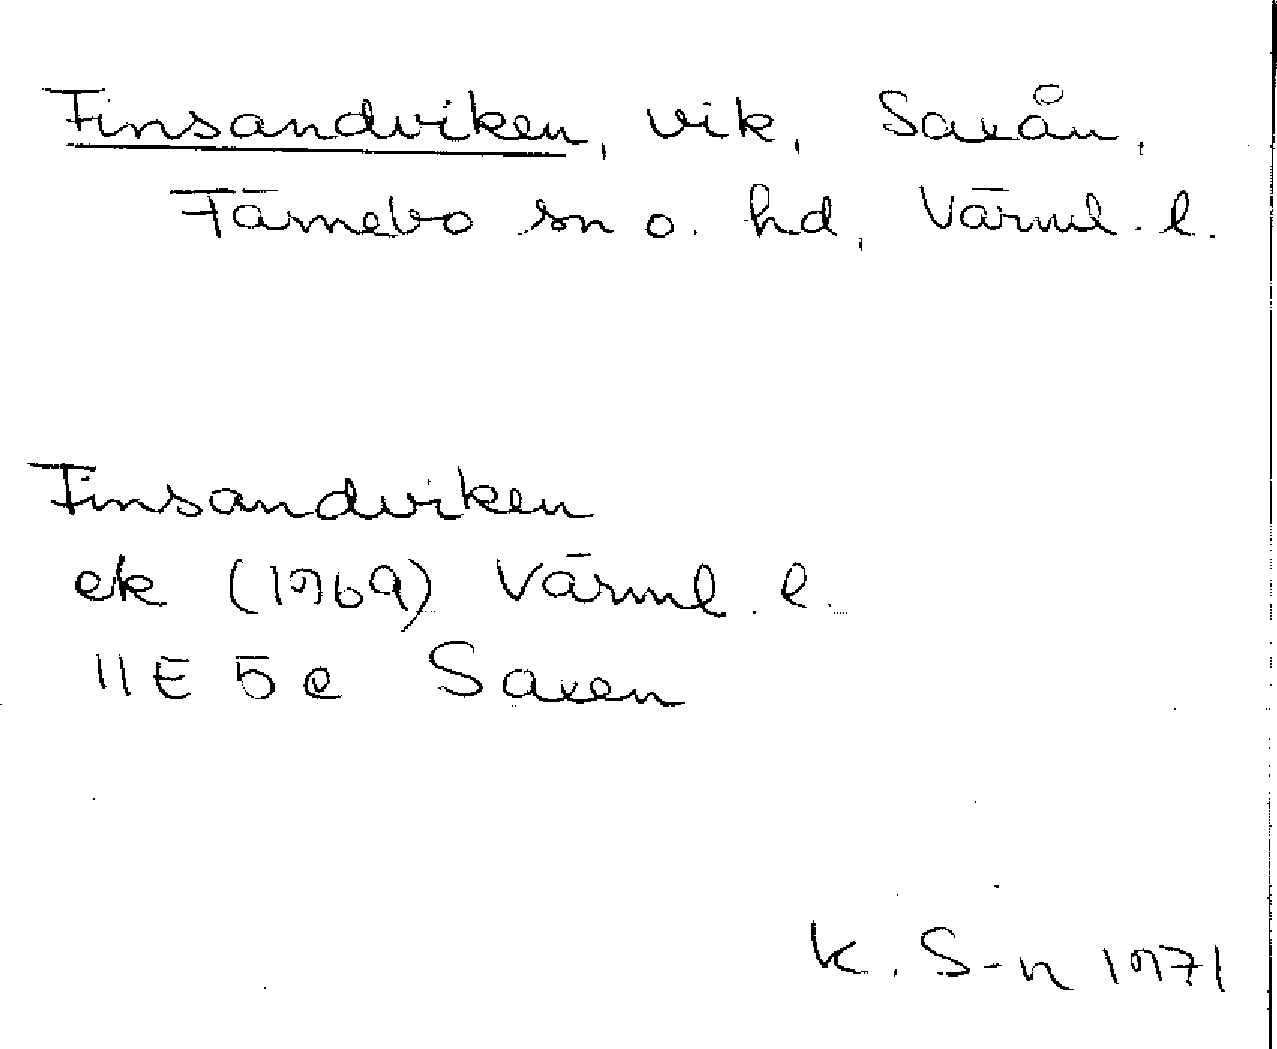 Finsandviken, vik, Saxån,
Färnebo sn o. hd, Värml. l.
Finsandviken
ek (1969) Värml. l.
11E 5e Saxen
K. S-n 1971